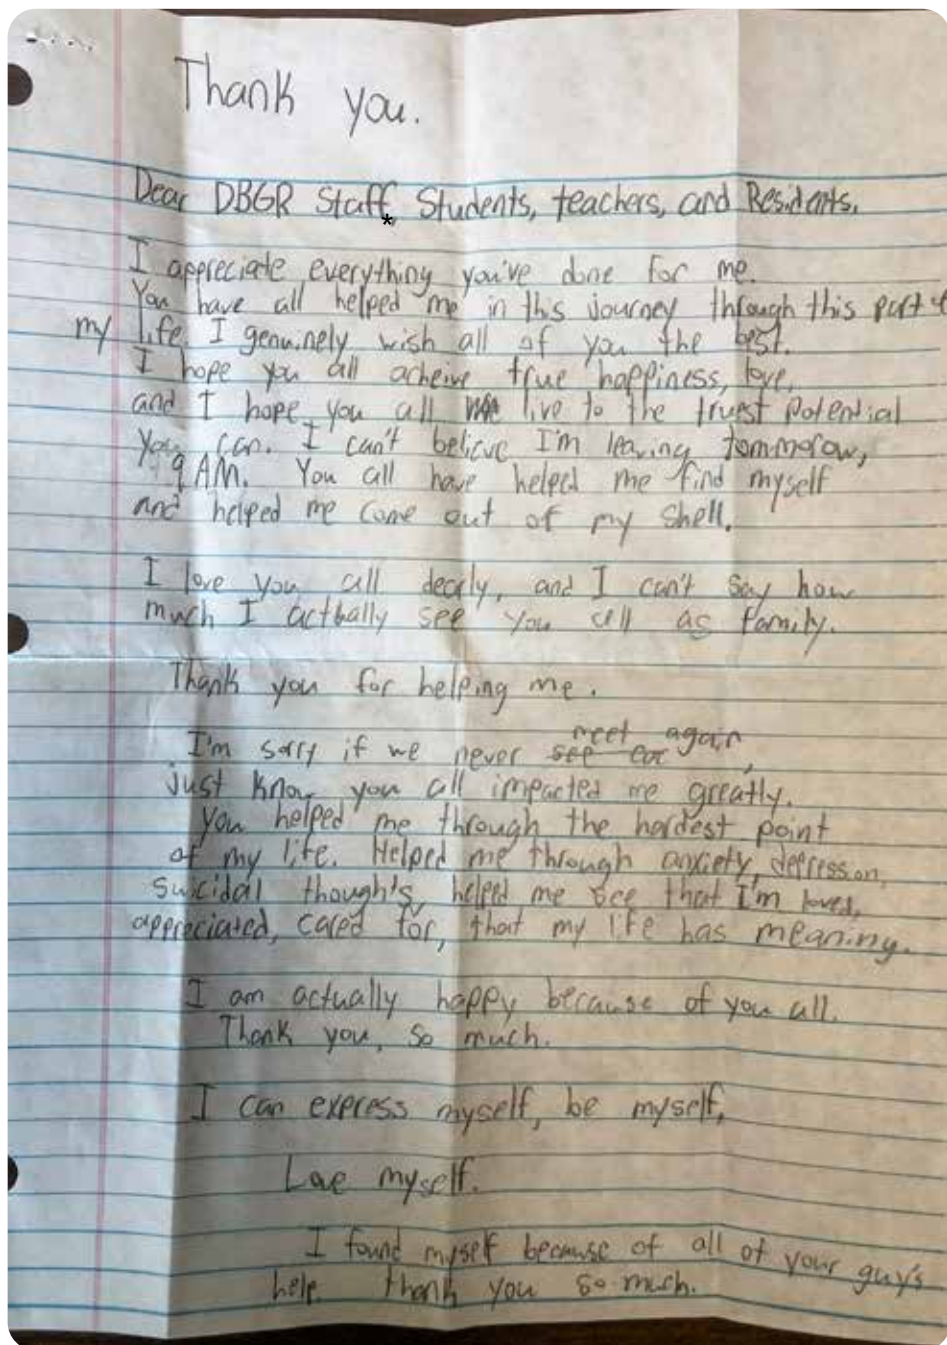 Thank you.
Dear DBGR Staff, Students, teachers, and Residents.
*
I appreciate everything you've done for me.
You have all helped me in this journey through this part of
my life. I genuinely wish all of you the best.
I hope you all acheive true happiness, love,
and I hope you all live to the truest potential
you can. I can't believe I'm leaving tommorow,
9 AM. You all have helped me find myself
and helped me come out of my shell.
I love you all dearly, and I can't say how
much I actually see you all as family.
Thank you for helping me.
meet again
I'm sorry if we never see eac,
just know you all impacted me greatly.
You helped me through the hardest point
of my life. Helped me through anxiety, depression,
suicidal though's, helped me see that I'm loved,
appreciated, cared for, that my life has meaning.
I am actually happy because of you all.
Thank you, so much.
I can express myself, be myself,
Love myself.
I found myself because of all of your guy's
help thank you so much.